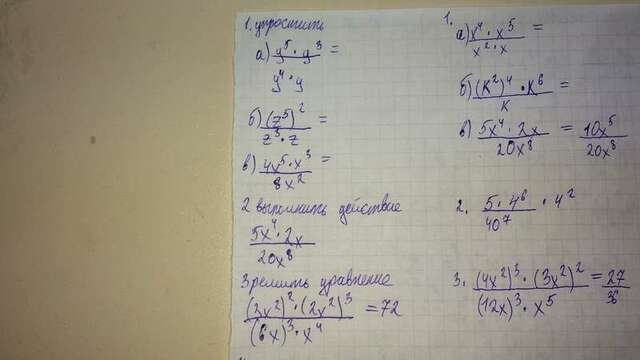 1. упростить
а) y⁵ · y³ / y⁴ · y =
б) (z⁵)² / z³ · z =
в) 4x⁵ · x³ / 8x² =
2 выполнить действие
5x⁴ · 2x / 20x⁸
3 решить уравнение
(3x²)² · (2x²)³ / (6x)³ · x⁴ = 72
1.
а) x⁴ · x⁵ / x² · x =
б) (k²)⁴ · k⁶ / k =
в) 5x⁴ · 2x / 20x⁸ = 10x⁵ / 20x⁸
2. 5 · 4⁶ / 40⁷ · 4²
3. (4x²)³ · (3x²)² / (12x)³ · x⁵ = 27 / 36